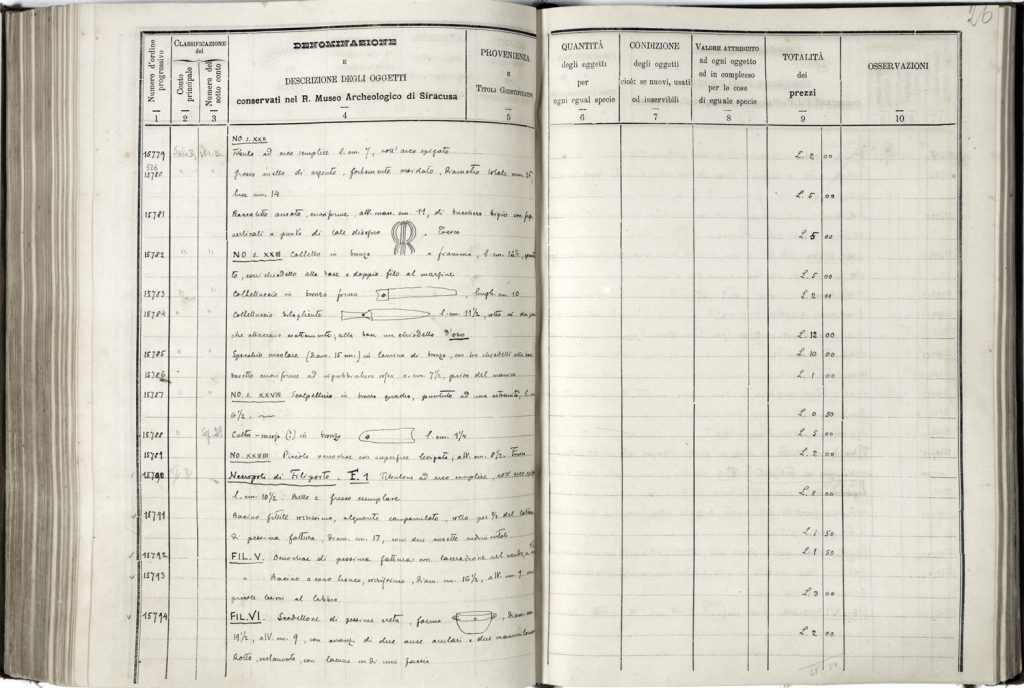 26
Numero d'ordine progressivo
CLASSIFICAZIONE
del
Conto principale
Numero del sotto conto
DENOMINAZIONE
E
DESCRIZIONE DEGLI OGGETTI
conservati nel R. Museo Archeologico di Siracusa
PROVENIENZA
E
TITOLI GIUSTIFICATIVI
QUANTITÀ
degli oggetti
per
ogni egual specie
CONDIZIONE
degli oggetti
cioè: se nuovi, usati
od inservibili
VALORE ATTRIBUITO
ad ogni oggetto
ed in complesso
per le cose
di eguale specie
TOTALITÀ
dei
prezzi
OSSERVAZIONI
1 2 3 4 5 6 7 8 9 10
NO. s. XXII
15779 Fibula ad arco semplice l. cm. 7, coll' arco spigato L. 2 00
15780 Grosso anello di argento, fortemente ossidato, diametro totale mm. 25,
luce mm. 14 L. 5 00
15781 cuoriforme, alt. mass. cm. 11, di bucchero bigio con
verticali a punti di tale disegno . Fresco L. 5 00
15782 NO. s. XXIII Coltello in bronzo a fiamma, l. cm. 16 1/2,
to, con chiodetto alla base e doppio filo al margine L. 5 00
15783 Coltelluccio in bronzo forma , lungh. cm. 10 L. 2 00
15784 Coltelluccio bitagliente l. cm. 11 1/2, rotto in due
che attaccano esattamente, alla base un chiodetto d'oro L. 12 00
15785 Specchio circolare (diam. 15 cm.) in lamina di bronzo, con tre chiodetti alla L. 10 00
15786 Vasetto cuoriforme ad rossa a. cm. 7 1/2, privo del manico L. 1 00
15787 NO. s. XXVIII Scalpellino in bronzo quadro, puntuto ad una estremità, l.
6 1/2. L. 0 50
15788 (?) in bronzo l. cm. 9 1/4 L. 5 00
15789 NO. XXXIII Piccola oenochoe con superficie levigata, alt. cm. 8 1/2. L. 2 00
15790 Necropoli di Filiporto. F. 1 Fibulone ad arco semplice, coll' arco
l. cm. 10 1/2. Bello e fresco esemplare L. 8 00
15791 Bacino fittile rozzissimo, alquanto campanulato, rotto per 2/3 del labbro
di pessima fattura, diam. cm. 17, con due ansette rudimentali L. 1 50
15792 FIL. V. Oenochoe di pessima fattura con lacerazione nel L. 1 50
15793 " Bacino a cono tronco, rozzissimo, diam. cm. 16 1/2, alt. cm. 9
piccole lesioni al labbro. L. 3 00
15794 FIL. VI Scodellone di pessima creta, forma , diam. cm.
19 1/2, alt. cm. 9, con avanzi di due anse anulari e due L. 2 00
Rotto, restaurato, con lacune